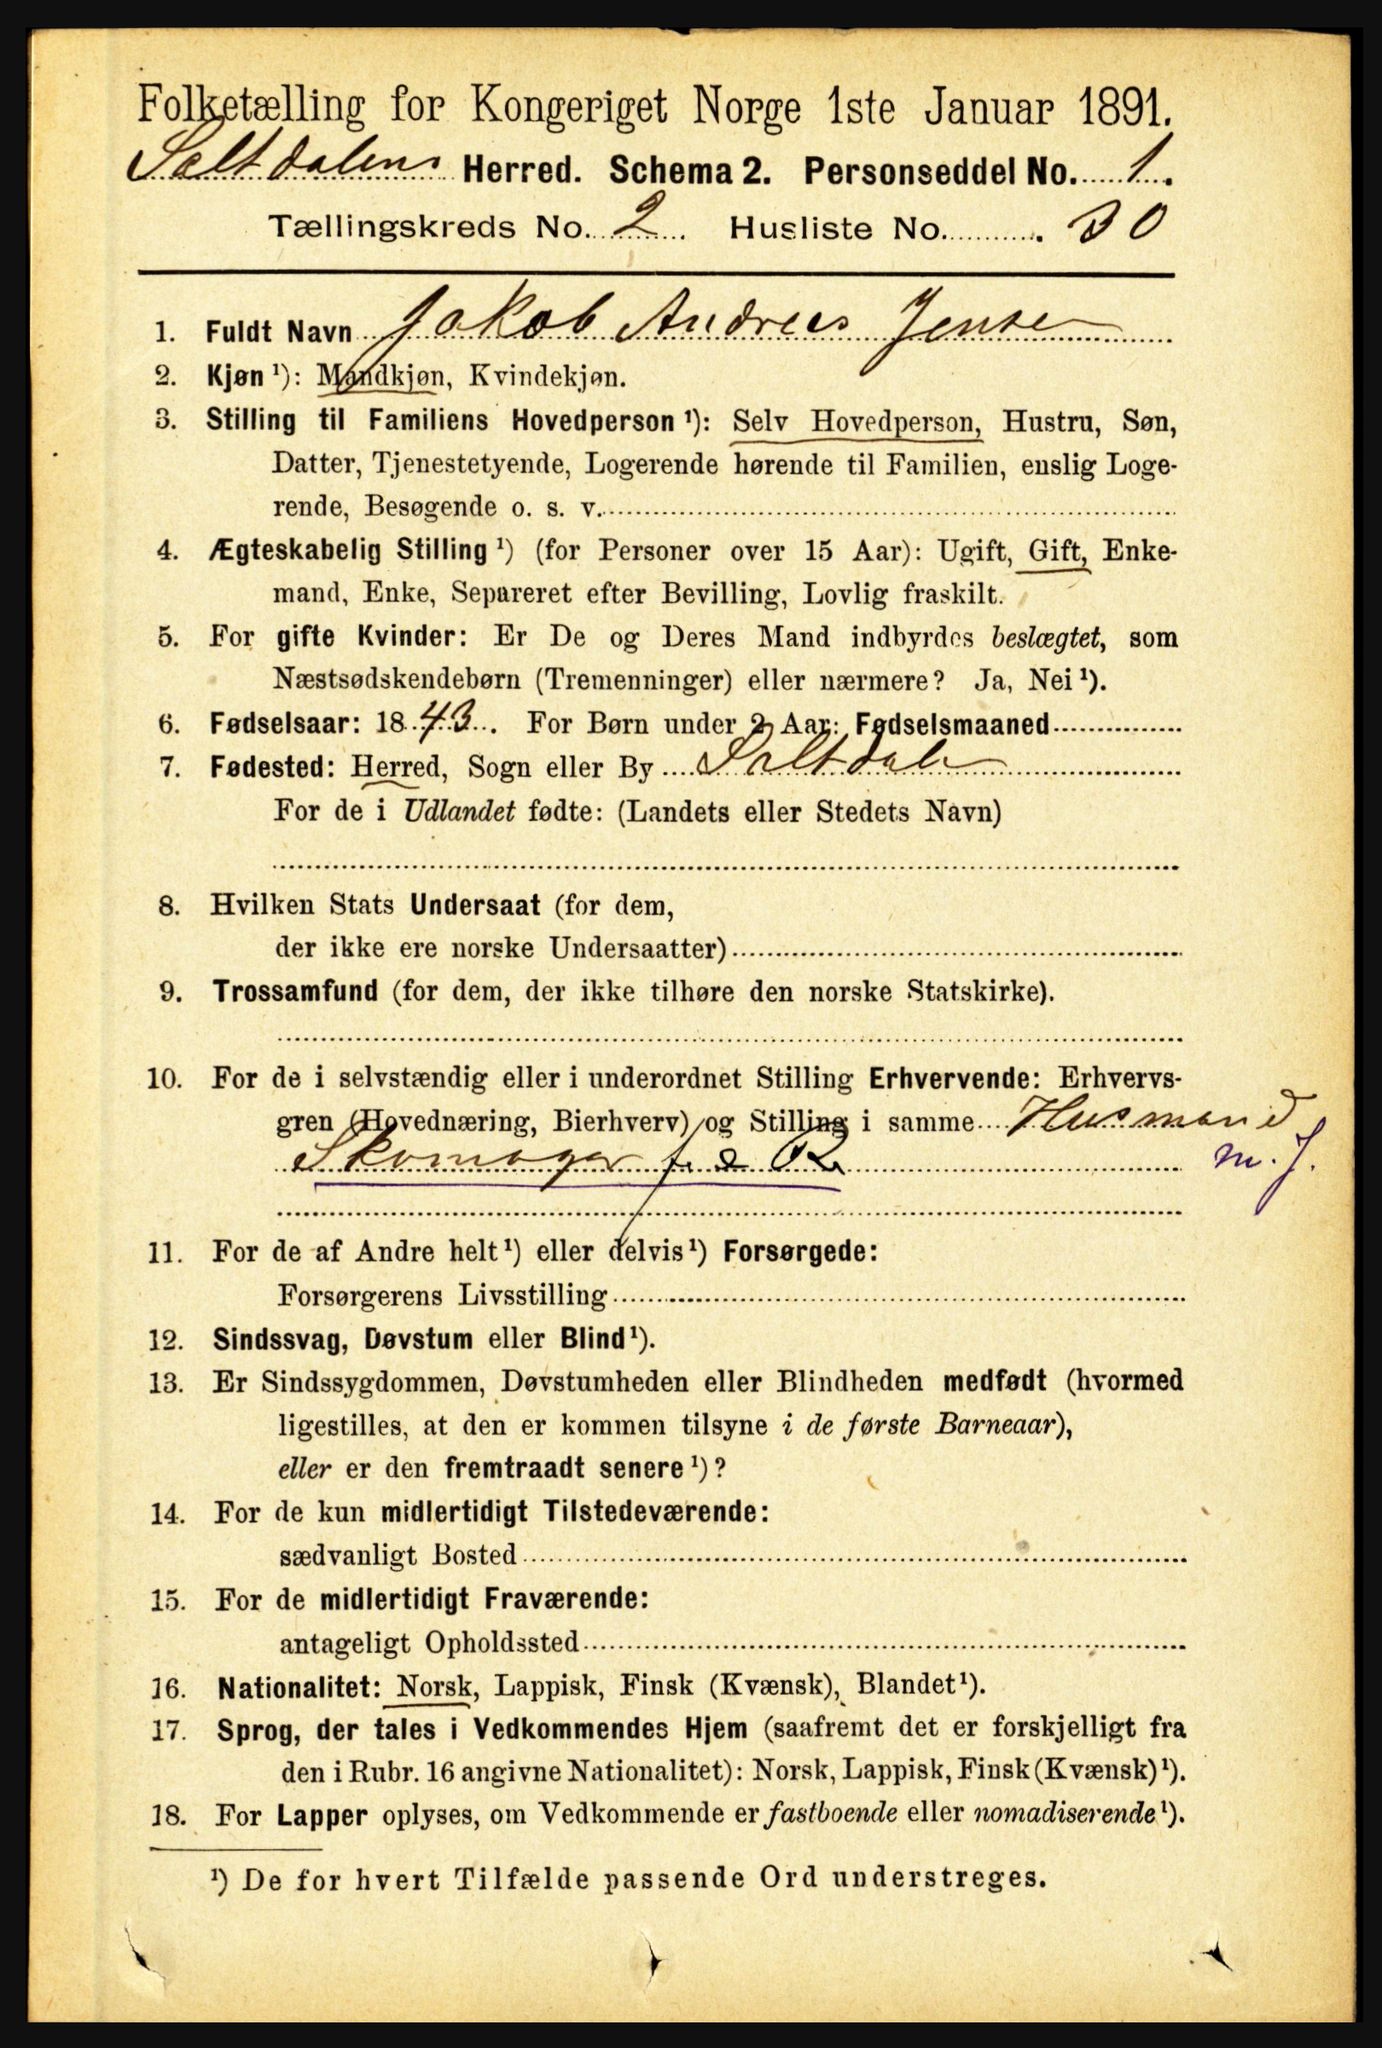 Folketælling for Kongeriget Norge 1ste Januar 1891.
Saltdalens Herred. Schema 2. Personseddel No. 1.
Tællingskreds No. 2. Husliste No. 30
1. Fuldt Navn Jakob Andreas Jensen
2. Kjøn ¹): Mandkjøn, Kvindekjøn.
3. Stilling til Familiens Hovedperson ¹): Selv Hovedperson, Hustru, Søn,
Datter, Tjenestetyende, Logerende hørende til Familien, enslig Loge-
rende, Besøgende o. s. v.
4. Ægteskabelig Stilling ¹) (for Personer over 15 Aar): Ugift, Gift, Enke-
mand, Enke, Separeret efter Bevilling, Lovlig fraskilt.
5. For gifte Kvinder: Er De og Deres Mand indbyrdes beslægtet, som
Næstsødskendebørn (Tremenninger) eller nærmere? Ja, Nei ¹).
6. Fødselsaar: 1843. For Børn under 2 Aar: Fødselsmaaned
7. Fødested: Herred, Sogn eller By Saltdalen
For de i Udlandet fødte: (Landets eller Stedets Navn)
8. Hvilken Stats Undersaat (for dem,
der ikke ere norske Undersaatter)
9. Trossamfund (for dem, der ikke tilhøre den norske Statskirke).
10. For de i selvstændig eller i underordnet Stilling Erhvervende: Erhvervs-
gren (Hovednæring, Bierhverv) og Stilling i samme Husmand
m. J.
Skomager f. e R
11. For de af Andre helt ¹) eller delvis ¹) Forsørgede:
Forsørgerens Livsstilling
12. Sindssvag, Døvstum eller Blind ¹).
13. Er Sindssygdommen, Døvstumheden eller Blindheden medfødt (hvormed
ligestilles, at den er kommen tilsyne i de første Barneaar),
eller er den fremtraadt senere ¹)?
14. For de kun midlertidigt Tilstedeværende:
sædvanligt Bosted
15. For de midlertidigt Fraværende:
antageligt Opholdssted
16. Nationalitet: Norsk, Lappisk, Finsk (Kvænsk), Blandet ¹).
17. Sprog, der tales i Vedkommendes Hjem (saafremt det er forskjelligt fra
den i Rubr. 16 angivne Nationalitet): Norsk, Lappisk, Finsk (Kvænsk) ¹).
18. For Lapper oplyses, om Vedkommende er fastboende eller nomadiserende ¹).
¹) De for hvert Tilfælde passende Ord understreges.